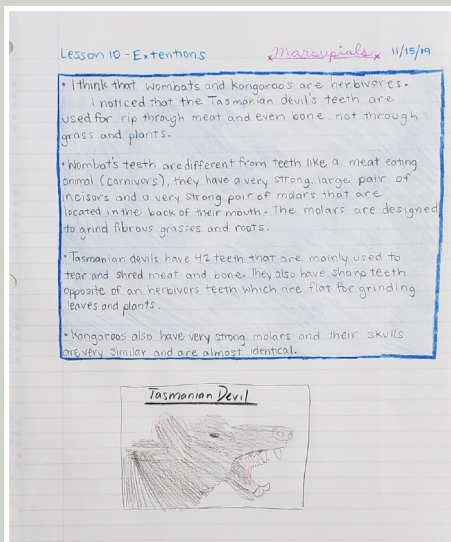 Lesson 10 - Extentions
Marsupials
11/15/19
• I think that Wombats and Kangaroos are herbivores.
I noticed that the Tasmanian devil's teeth are
used for rip through meat and even bone. not through
grass and plants.
• Wombat's teeth are different from teeth like a meat eating
animal (carnivors), they have a very strong, large pair of
incisors and a very strong pair of molars that are
located in the back of their mouth. The molars are designed
to grind fibrous grasses and roots.
• Tasmanian devils have 42 teeth that are mainly used to
tear and shred meat and bone. They also have sharp teeth
opposite of an herbivors teeth which are flat for grinding
leaves and plants.
• Kangaroos also have very strong molars and their skulls
are very similar and are almost identical.
Tasmanian Devil